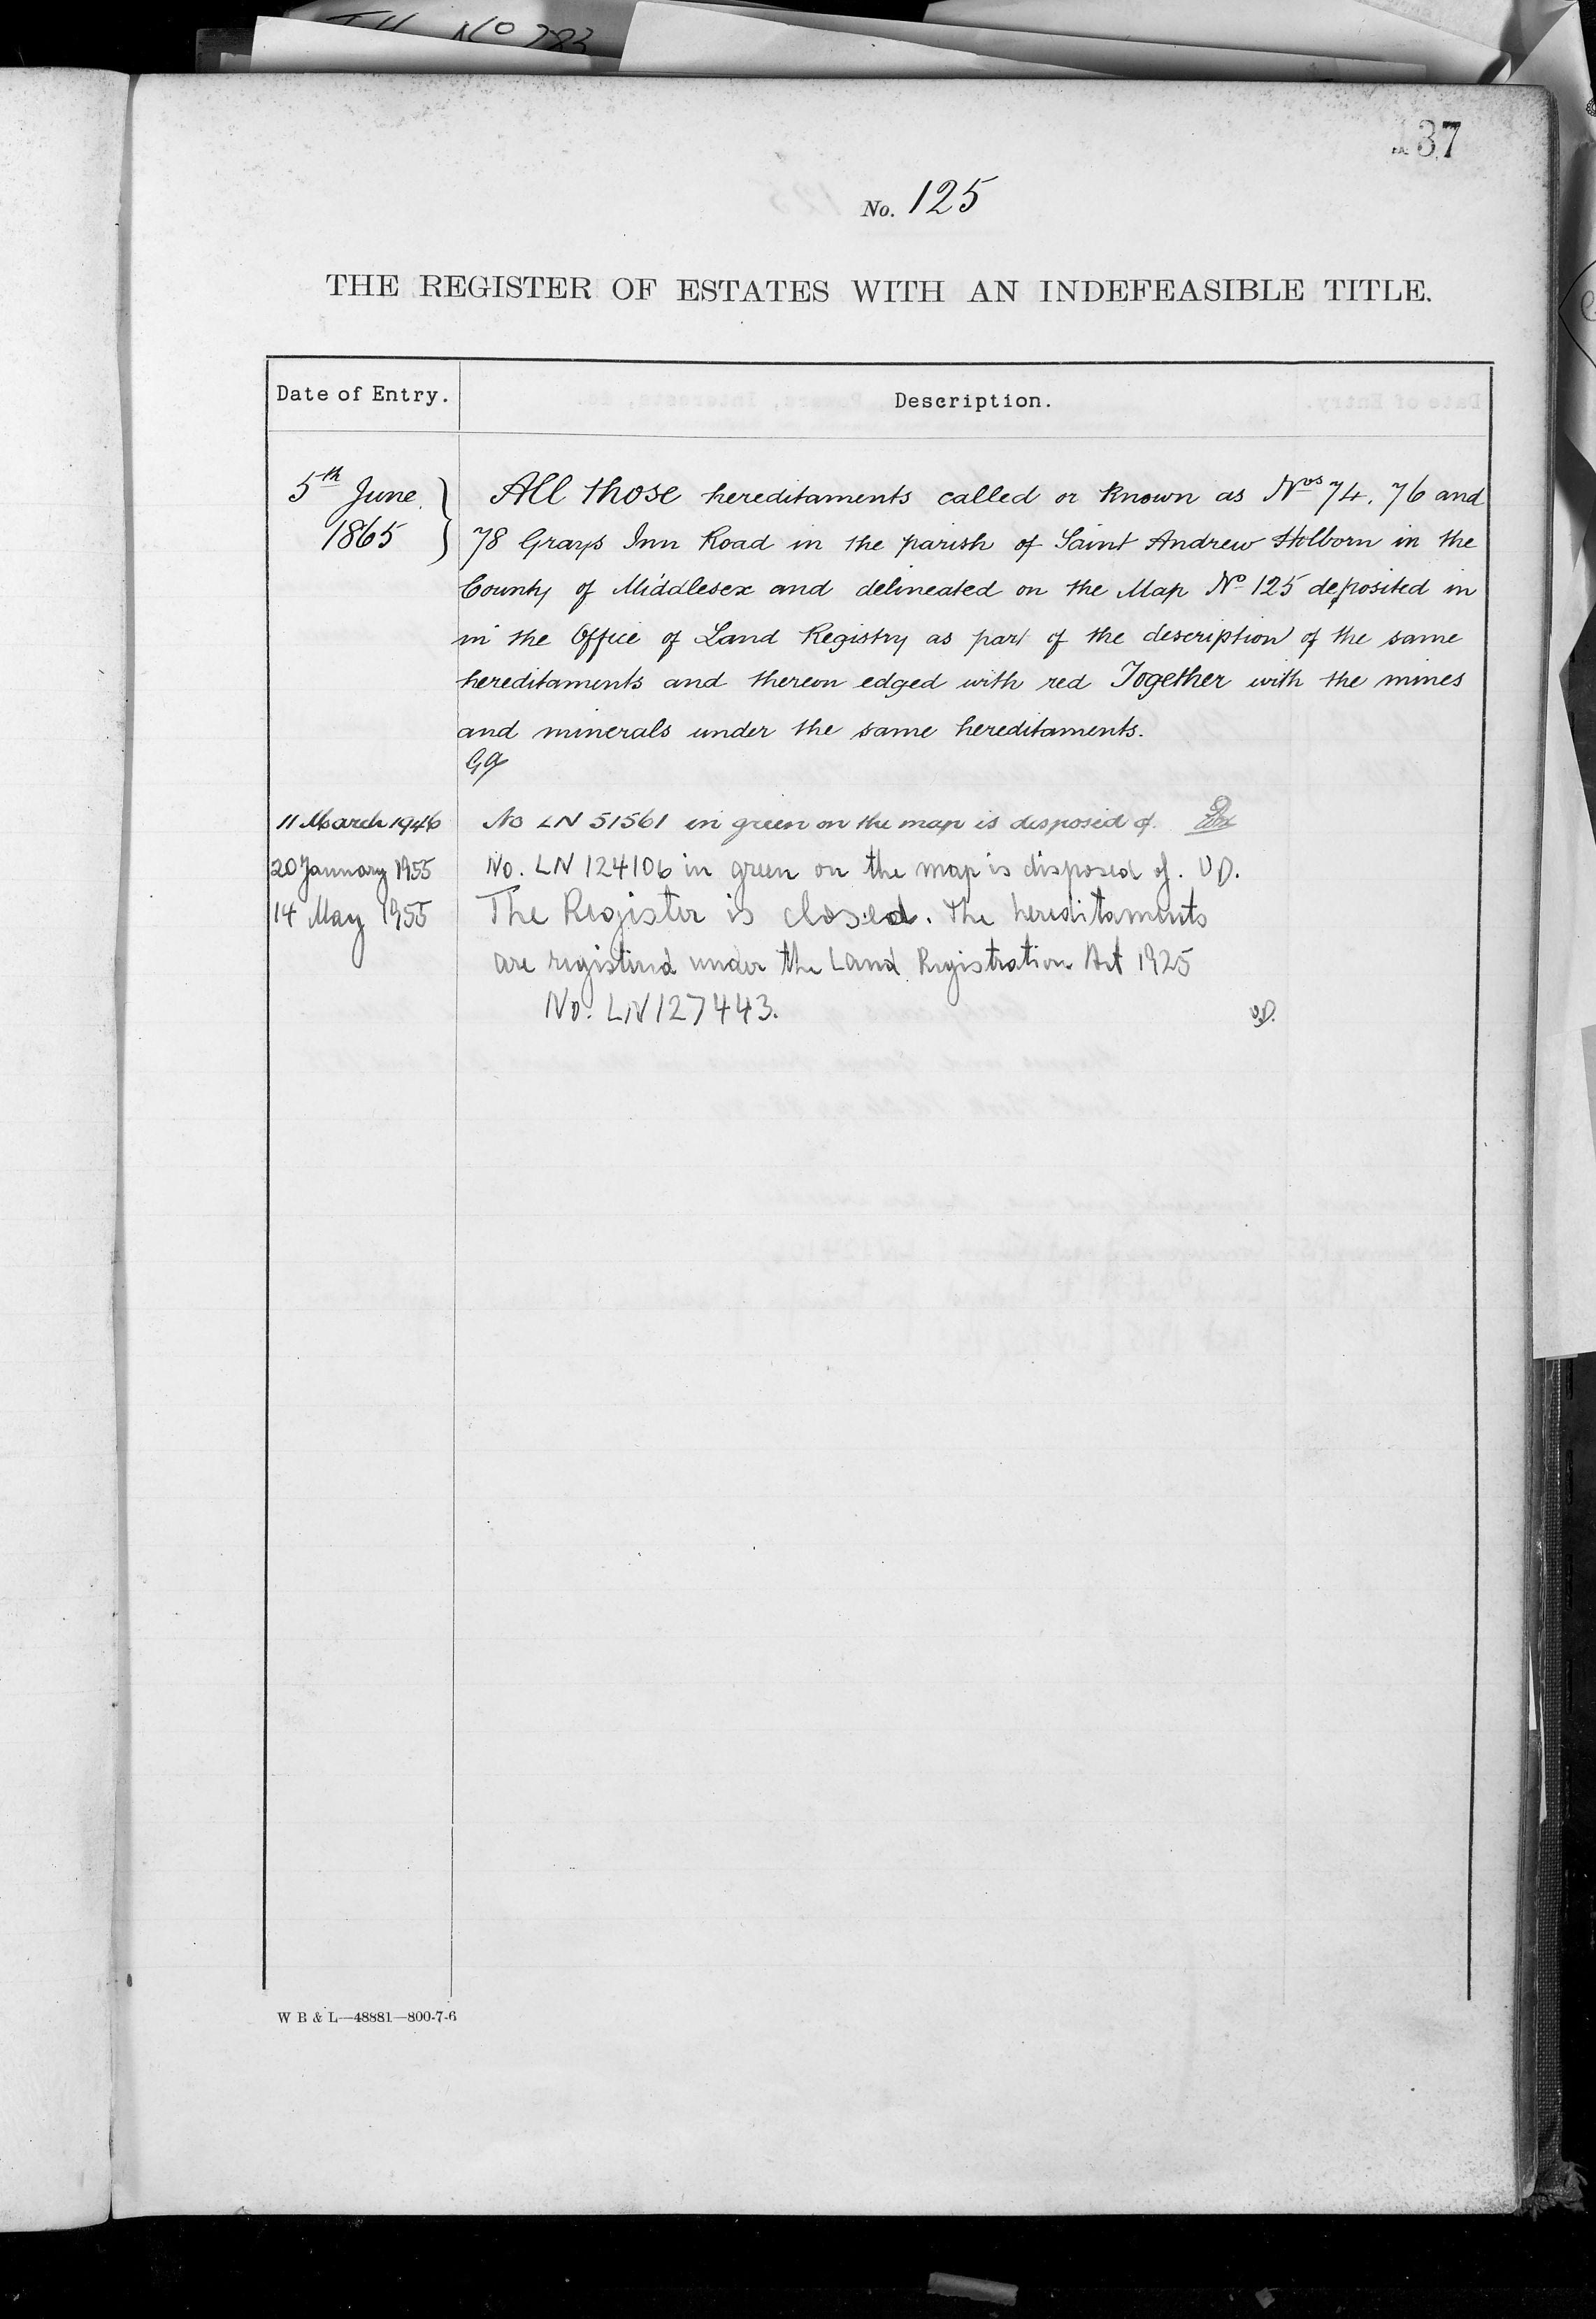 137
No. 125
THE REGISTER OF ESTATES WITH AN INDEFEASIBLE TITLE.
Date of Entry.
Description.
5th June
1865
All those hereditaments called or known as Nos 74. 76 and
78 Grays Inn Road in the parish of Saint Andrew Holborn in the
County of Middlesex and delineated on the Map No 125 deposited in
in the Office of Land Registry as part of the description of the same
hereditaments and thereon edged with red Together with the mines
and minerals under the same hereditaments.
11 March 1946 No LN 51561 in green on the map is disposed of.
20 January 1955 No. LN 124106 in green on the map is disposed of. VD.
14 May 1955 The Register is closed. The hereditaments
are registered under the Land Registration Act 1925
No. LN127443. VD.
W B & L—48881—800-7-6